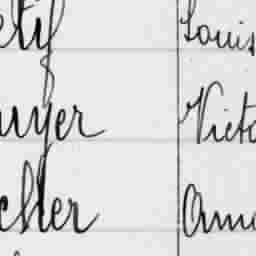 etif Louis
uyer Victo
cher Ama